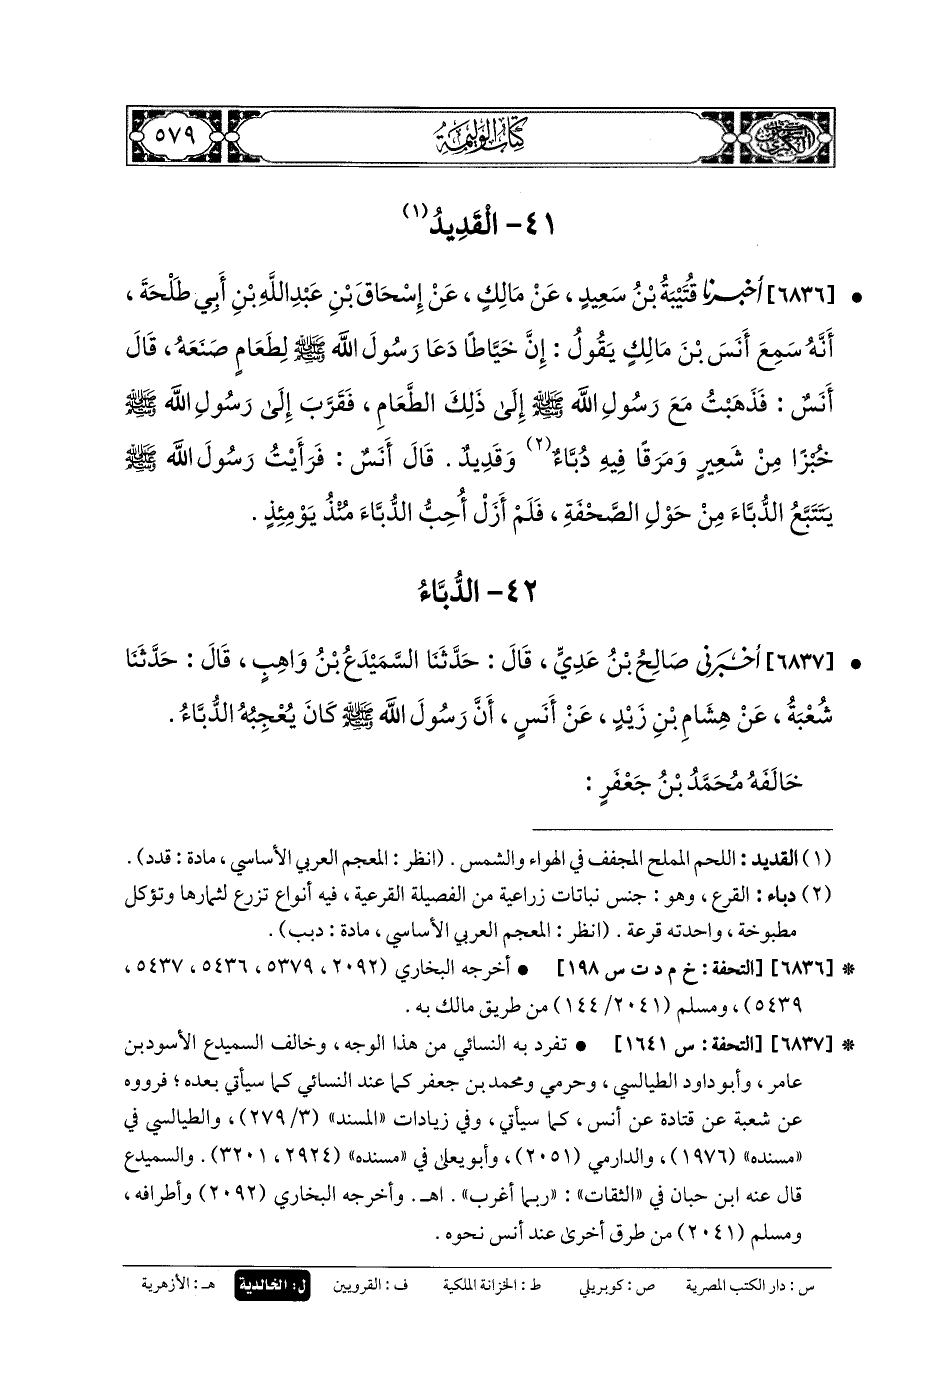 ٥٧٩
كتاب الوليمة
السنن الكبرى
٤١- الْقَدِيدُ (١)
• [٦٨٣٦] أَخْبَرَنَا قُتَيْبَةُ بْنُ سَعِيدٍ ، عَنْ مَالِكٍ ، عَنْ إِسْحَاقَ بْنِ عَبْدِ اللَّهِ بْنِ أَبِي طَلْحَةَ ،
أَنَّهُ سَمِعَ أَنَسَ بْنَ مَالِكٍ يَقُولُ : إِنَّ خَيَّاطًا دَعَا رَسُولَ اللَّه ﷺ لِطَعَامٍ صَنَعَهُ ، قَالَ
أَنَسٌ : فَذَهَبْتُ مَعَ رَسُولِ اللَّه ﷺ إِلَىٰ ذَلِكَ الطَّعَامِ ، فَقَرَّبَ إِلَىٰ رَسُولِ اللَّه ﷺ
خُبْزًا مِنْ شَعِيرٍ وَمَرَقًا فِيهِ دُبَّاءٌ (٢) وَقَدِيدٌ . قَالَ أَنَسٌ : فَرَأَيْتُ رَسُولَ اللَّه ﷺ
يَتَتَبَّعُ الدُّبَّاءَ مِنْ حَوْلِ الصَّحْفَةِ ، فَلَمْ أَزَلْ أُحِبُّ الدُّبَّاءَ مُنْذُ يَوْمِئِذٍ .
٤٢- الدُّبَّاءُ
• [٦٨٣٧] أَخْبَرَنِي صَالِحُ بْنُ عَدِيٍّ ، قَالَ : حَدَّثَنَا السَّمَيْدَعُ بْنُ وَاهِبٍ ، قَالَ : حَدَّثَنَا
شُعْبَةُ ، عَنْ هِشَامِ بْنِ زَيْدٍ ، عَنْ أَنَسٍ ، أَنَّ رَسُولَ اللَّه ﷺ كَانَ يُعْجِبُهُ الدُّبَّاءُ .
خَالَفَهُ مُحَمَّدُ بْنُ جَعْفَرٍ :
(١) القديد : اللحم المملح المجفف في الهواء والشمس . (انظر : المعجم العربي الأساسي ، مادة : قدد) .
(٢) دباء : القرع ، وهو : جنس نباتات زراعية من الفصيلة القرعية ، فيه أنواع تزرع لثمارها وتؤكل
مطبوخة ، واحدته قرعة . (انظر : المعجم العربي الأساسي ، مادة : دبب) .
* [٦٨٣٦] [التحفة : خ م د ت س ١٩٨] • أخرجه البخاري (٢٠٩٢ ، ٥٣٧٩ ، ٥٤٣٦ ، ٥٤٣٧ ،
٥٤٣٩) ، ومسلم (٢٠٤١/ ١٤٤) من طريق مالك به .
* [٦٨٣٧] [التحفة : س ١٦٤١] • تفرد به النسائي من هذا الوجه ، وخالف السميدع الأسود بن
عامر ، وأبو داود الطيالسي ، وحرمي ومحمد بن جعفر كما عند النسائي كما سيأتي بعده ؛ فرووه
عن شعبة عن قتادة عن أنس ، كما سيأتي ، وفي زيادات «المسند» (٣/ ٢٧٩) ، والطيالسي في
«مسنده» (١٩٧٦) ، والدارمي (٢٠٥١) ، وأبو يعلى في «مسنده» (٢٩٢٤ ، ٣٢٠١) . والسميدع
قال عنه ابن حبان في «الثقات» : «ربما أغرب» . اهـ. وأخرجه البخاري (٢٠٩٢) وأطرافه ،
ومسلم (٢٠٤١) من طرق أخرى عند أنس نحوه .
س : دار الكتب المصرية ص : كوبريلي ط : الخزانة الملكية ف : القرويين ل : الخالدية هـ : الأزهرية